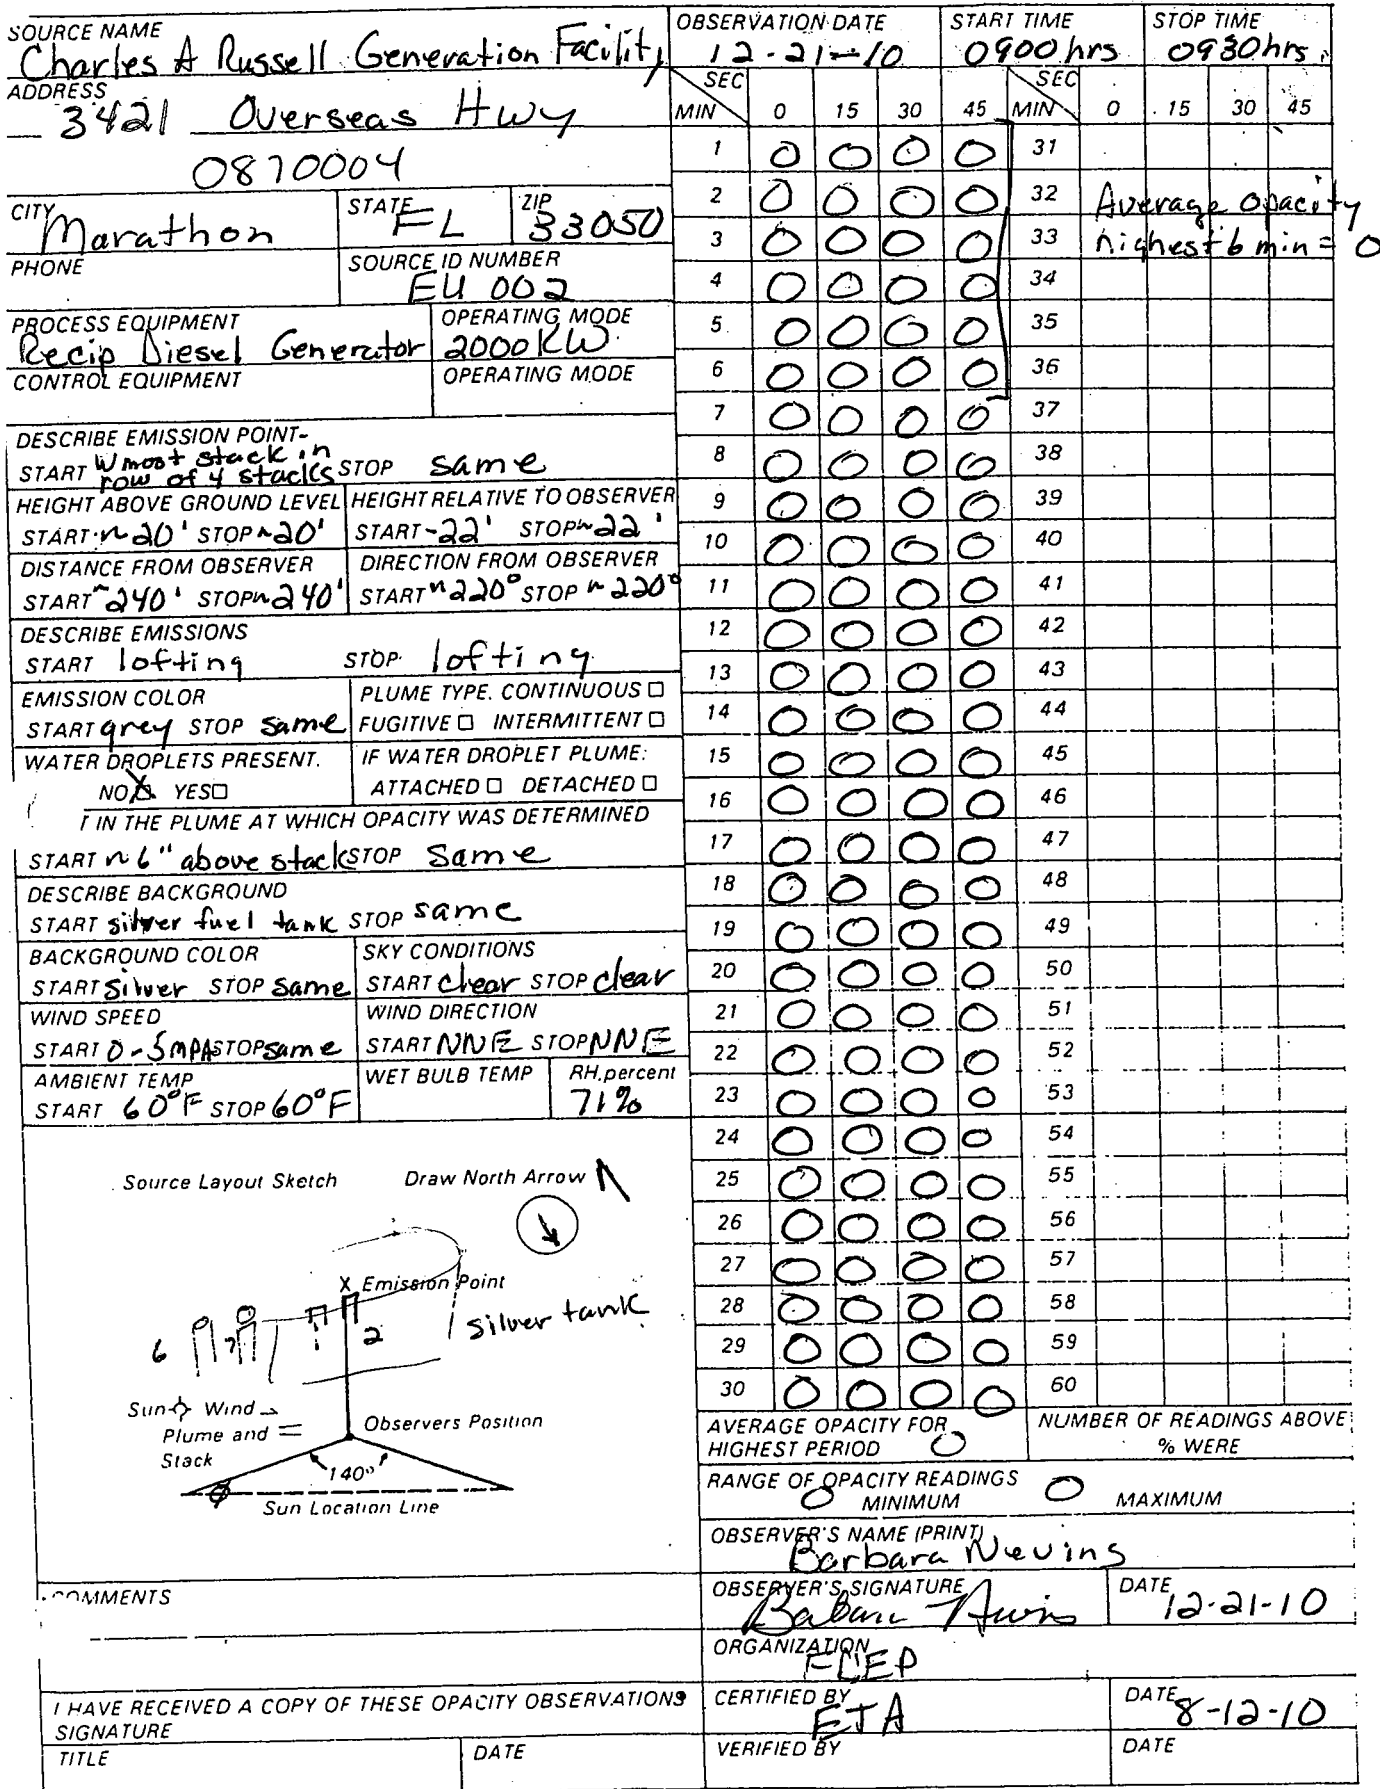 SOURCE NAME
Charles A Russell Generation Facility
ADDRESS
3421 Overseas Hwy
0870004
CITY
Marathon
STATE
FL
ZIP
33050
PHONE
SOURCE ID NUMBER
EU 002
PROCESS EQUIPMENT
Recip Diesel Generator
OPERATING MODE
2000 KW
CONTROL EQUIPMENT
OPERATING MODE
DESCRIBE EMISSION POINT-
START W most stack in row of 4 stacks STOP same
HEIGHT ABOVE GROUND LEVEL
START ~20' STOP ~20'
HEIGHT RELATIVE TO OBSERVER
START -22' STOP ~22'
DISTANCE FROM OBSERVER
START ~240' STOP ~240'
DIRECTION FROM OBSERVER
START ~220° STOP ~220°
DESCRIBE EMISSIONS
START lofting STOP lofting
EMISSION COLOR
START grey STOP same
PLUME TYPE. CONTINUOUS □
FUGITIVE □ INTERMITTENT □
WATER DROPLETS PRESENT.
NO ☒ YES □
IF WATER DROPLET PLUME:
ATTACHED □ DETACHED □
T IN THE PLUME AT WHICH OPACITY WAS DETERMINED
START ~6" above stack STOP same
DESCRIBE BACKGROUND
START silver fuel tank STOP same
BACKGROUND COLOR
START Silver STOP same
SKY CONDITIONS
START clear STOP clear
WIND SPEED
START 0-5 MPH STOP same
WIND DIRECTION
START NNE STOP NNE
AMBIENT TEMP
START 60°F STOP 60°F
WET BULB TEMP
RH, percent
71%
Source Layout Sketch Draw North Arrow
X Emission Point
6 7 2 silver tank
Sun Wind
Plume and
Stack
Observers Position
140°
Sun Location Line
COMMENTS
I HAVE RECEIVED A COPY OF THESE OPACITY OBSERVATIONS
SIGNATURE
TITLE
DATE
OBSERVATION DATE
12-21-10
START TIME
0900 hrs
STOP TIME
0930 hrs.
SEC
MIN 0 15 30 45
1 0 0 0 0
2 0 0 0 0
3 0 0 0 0
4 0 0 0 0
5 0 0 0 0
6 0 0 0 0
7 0 0 0 0
8 0 0 0 0
9 0 0 0 0
10 0 0 0 0
11 0 0 0 0
12 0 0 0 0
13 0 0 0 0
14 0 0 0 0
15 0 0 0 0
16 0 0 0 0
17 0 0 0 0
18 0 0 0 0
19 0 0 0 0
20 0 0 0 0
21 0 0 0 0
22 0 0 0 0
23 0 0 0 0
24 0 0 0 0
25 0 0 0 0
26 0 0 0 0
27 0 0 0 0
28 0 0 0 0
29 0 0 0 0
30 0 0 0 0
SEC
MIN 0 15 30 45
31
32 Average opacity
33 highest 6 min = 0
34
35
36
37
38
39
40
41
42
43
44
45
46
47
48
49
50
51
52
53
54
55
56
57
58
59
60
AVERAGE OPACITY FOR
HIGHEST PERIOD 0
NUMBER OF READINGS ABOVE
% WERE
RANGE OF OPACITY READINGS
0 MINIMUM 0 MAXIMUM
OBSERVER'S NAME (PRINT)
Barbara Nevins
OBSERVER'S SIGNATURE
Barbara Nevins
DATE
12-21-10
ORGANIZATION
FDEP
CERTIFIED BY
ETA
DATE
8-12-10
VERIFIED BY
DATE